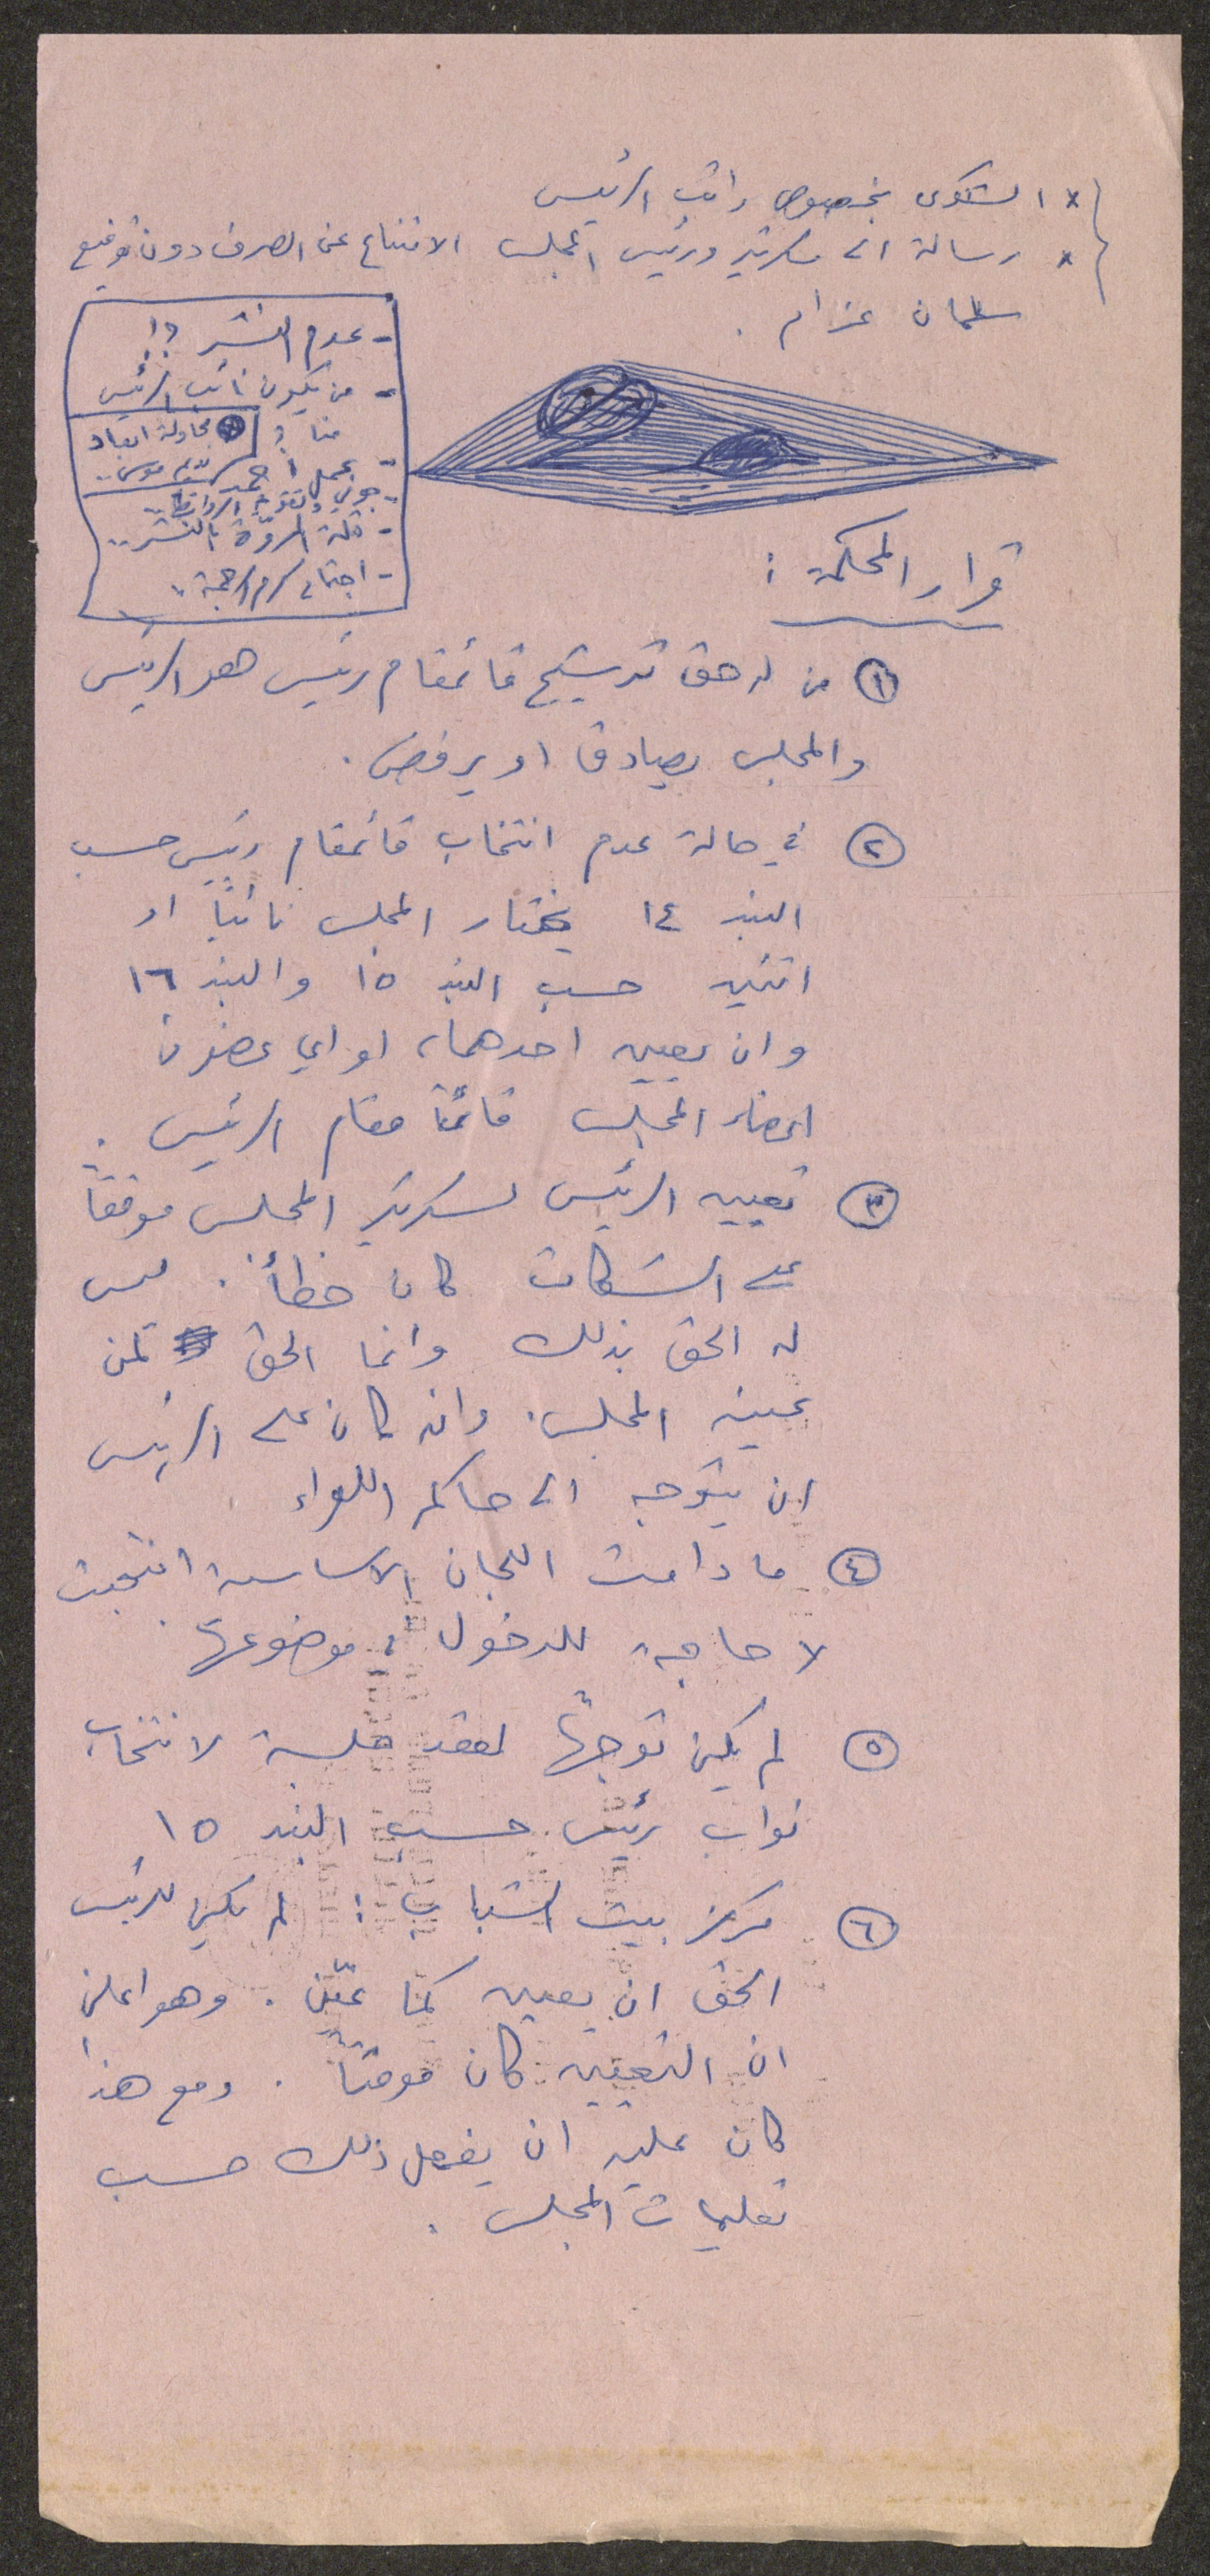 * الشكوى بخصوص راتب الرئيس
* رسالة الى سكرتير ورئيس المجلس الامتناع عن الصرف دون توقيع
سلمان عزام .
- عدم النشر ؟!
- من يكون نائب الرئيس
منا ؟
محاولة ابعاد
- قلة المروّة بالنشر ..
قرار المحكمة :
١ من له حق ترشيح قائمقام رئيس هو الرئيس
والمجلس يصادق او يرفض .
٢ في حالة عدم انتخاب قائمقام رئيس حسب
البند ١٤ يختار المجلس نائباً او
اثنين حسب البند ١٥ والبند ١٦
وان يعين احدهما، او اي عضو من
اعضاء المجلس قائمًا مقام الرئيس .
٣ تعيين الرئيس لسكرتير المجلس موقعًا
على الشكات كان خطأً . ليس
له الحق بذلك وانما الحق لمن
عينه المجلس. وانه كان على الرئيس
ان يتوجه الى حاكم اللواء
٤ ما دامت اللجان الاساسية انتخبت
لا حاجة للدخول في موضوعها
٥ لم يكن توجهًا لعقد جلسة لانتخاب
نواب رئيس حسب البند ١٥
٦ مركز بيت الشباب : لم يكن للرئيس
الحق ان يعين كما عيّن . وهو اعلن
ان التعيين كان موقتًا . ومع هذا
كان عليه ان يفعل ذلك حسب
تعليمات المجلس .